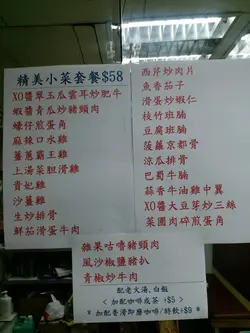 精美小菜套餐$58
XO醬翠玉瓜雲耳炒肥牛
蝦醬青瓜炒豬頸肉
蠔仔煎蛋角
麻辣口水雞
薑蔥霸王雞
上湯菜胆滑雞
貴妃雞
沙薑雞
生炒排骨
鮮茄滑蛋牛肉
西芹炒肉片
魚香茄子
滑蛋炒蝦仁
枝竹班腩
豆腐班腩
菠蘿京都骨
涼瓜排骨
巴蜀牛腩
蒜香牛油雞中翼
XO醬大豆芽炒三絲
菜圃肉碎煎蛋角
雜果咕嚕豬頸肉
風沙椒鹽豬扒
青椒炒牛肉
配老火湯、白飯
< 加配咖啡或茶 +$5 >
* 加配香滑即磨咖啡/特飲 +$9 *